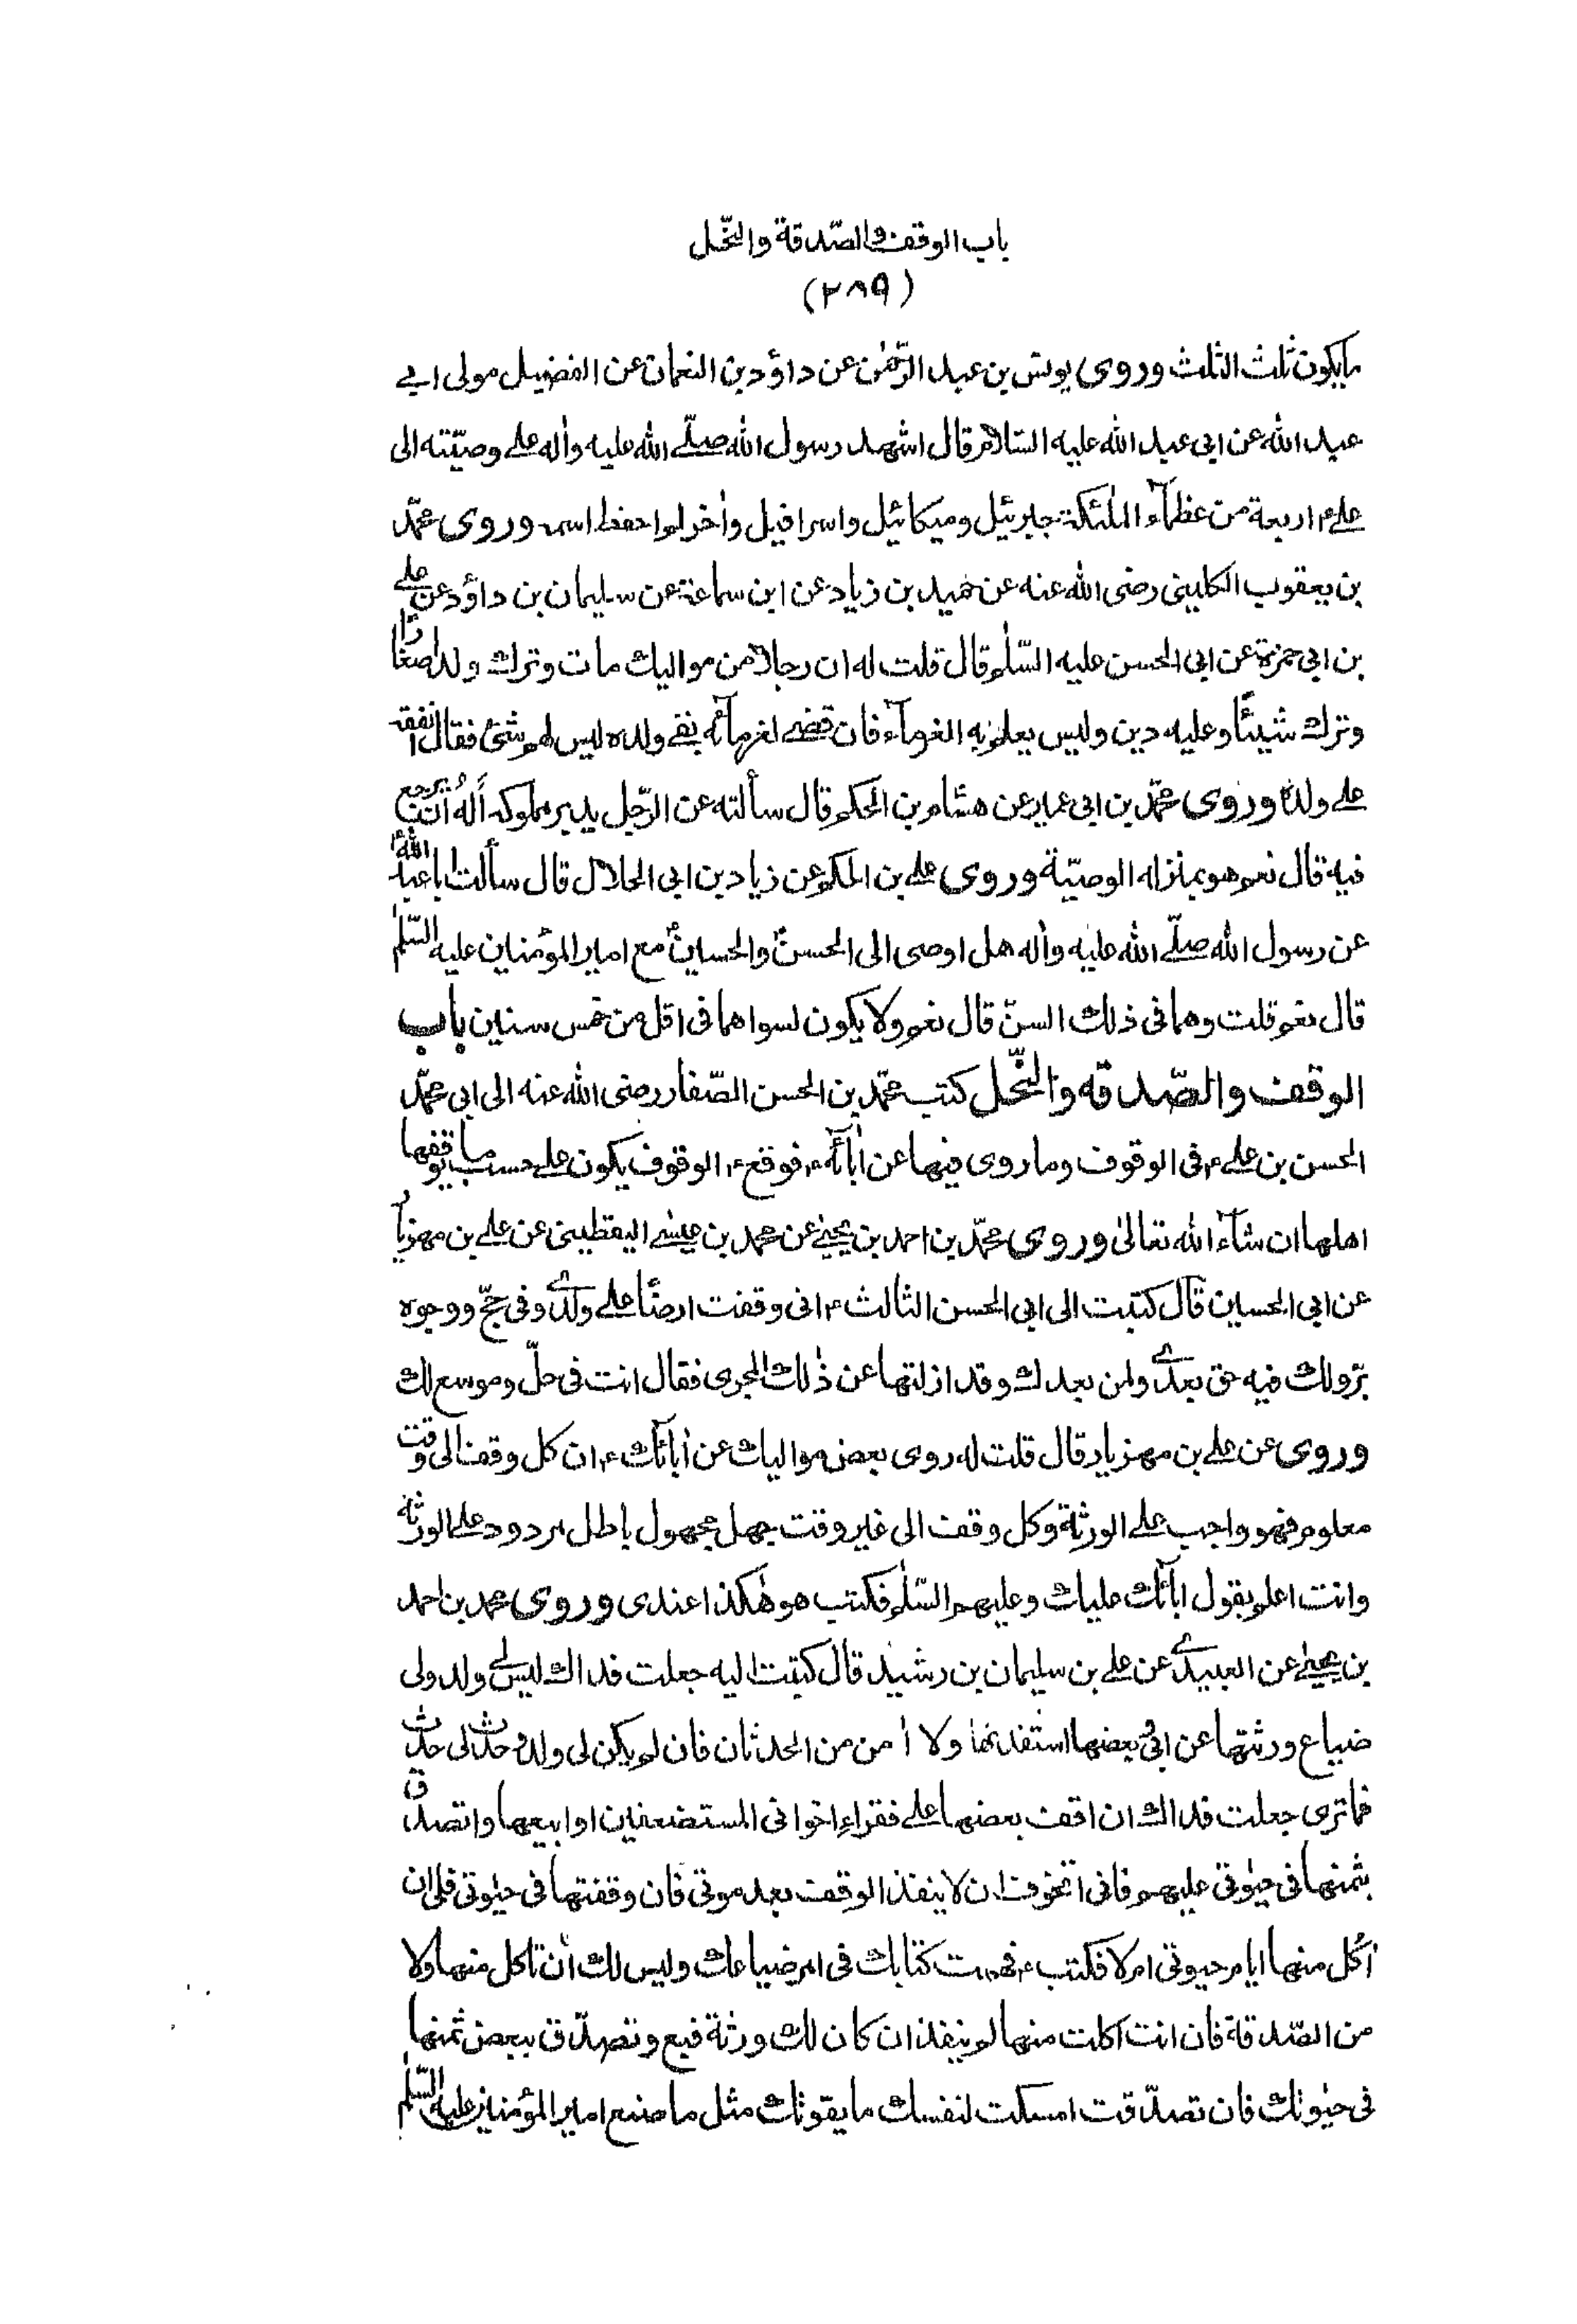 باب الوقف والصّدقة والنّحل
(٢٨٩)
ما يكون ثلث الثلث وروى يونس بن عبد الرّحمٰن عن داؤد بن النعمان عن الفضيل مولى ابي
عبد الله عن ابى عبد الله عليه السّلام قال اشهد رسول الله صلّى الله عليه واٰله على وصيّته الى
على ع اربعة من عظمآء الملٰئكة جبرئيل وميكائيل واسرافيل واٰخر لم احفظ اسمه وروى محمّد
بن يعقوب الكلينى رضى الله عنه عن حميد بن زياد عن ابن سماعة عن سليمان بن داؤد عن على
بن ابى حمزة عن ابى الحسن عليه السّلٰم قال قلت له ان رجلا من مواليك مات وترك ولدا صغارًا
وترك شيئًا وعليه دين وليس يعلم به الغرمآء فان قضى لغرمآئه بقى ولده ليس لهم شئ فقال انفقه
على ولده وروى محمّد بن ابى عمير عن هشام بن الحكم قال سألته عن الرّجل يدبر مملوكه أَلَهُ ان يرجع
فيه قال نعم هو بمنزلة الوصيّة وروى على بن الحكم عن زياد بن ابى الحلال قال سألت ابا عبد الله ع
عن رسول الله صلّى الله عليه واٰله هل اوصى الى الحسنؑ والحسينؑ مع امير المؤمنين عليه السّلٰم
قال نعم قلت وهما فى ذلك السنّ قال نعم ولا يكون لسواهما فى اقل من خمس سنين باب
الوقف والصّدقه والنّحل كتب محمّد بن الحسن الصّفار رضى الله عنه الى ابى محمّد
الحسن بن على ع فى الوقوف وما روى فيها عن اٰبآئه ع فوقع ع الوقوف يكون على حسب ما يوقفها
اهلها ان شآء الله تعالىٰ وروى محمّد بن احمد بن يحيىٰ عن محمد بن عيسى اليقطينى عن على بن مهزيار
عن ابى الحسين قال كتبت الى ابى الحسن الثالث ع انى وقفت ارضًا على ولدى وفى حجّ ووجوه
برّ ولك فيه حق بعدى ولمن بعدك وقد ازلتها عن ذٰلك المجرى فقال انت فى حلّ وموسع لك
وروى عن على بن مهزيار قال قلت له روى بعض مواليك عن اٰبآئك ع ان كل وقف الى وقت
معلوم فهو واجب على الورثة وكل وقف الى غير وقت جهل مجهول باطل مردود على الورثة
وانت اعلم بقول اٰبآئك عليك وعليهم السّلٰم فكتب هو هٰكذا عندى وروى محمد بن احمد
بن يحيىٰ عن العبيدى عن على بن سليمان بن رشيد قال كتبت اليه جعلت فداك ليس لى ولد ولى
ضياع ورثتها عن ابى وبعضها استفدتها ولا اٰمن من الحدثان فان لم يكن لى ولد وحدث لى حدث
فما ترى جعلت فداك ان اقف بعضها على فقراء اخوانى المستضعفين او ابيعها واتصدّق
بثمنها فى حيٰوتى عليهم فانى اتخوف ان لا ينفذ الوقف بعد موتى فان وقفتها فى حيٰوتى فلى ان
اٰكُل منها ايام حيوتى ام لا فكتب ع فهمت كتابك فى امر ضياعك وليس لك ان تاكل منها ولا
من الصّدقة فان انت اكلت منها لم ينفذ ان كان لك ورثة فبع وتصدّق ببعض ثمنها
فى حيٰوتك فان تصدّقت امسكت لنفسك ما يقوتك مثل ما صنع امير المؤمنين عليه السّلٰم